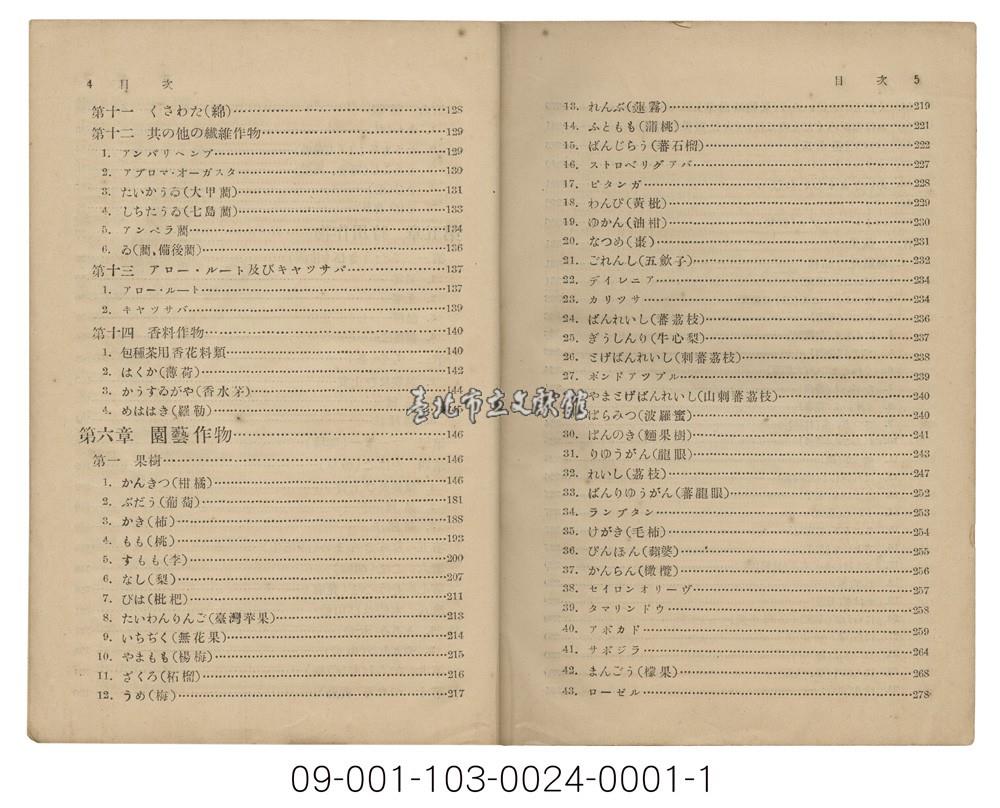 4 目次
第十一 くさわた(綿)……128
第十二 其の他の纎維作物……129
1. アンバリヘンプ……129
2. アブロマ・オーガスタ……130
3. たいかうゐ(大甲藺)……131
4. しちたうゐ(七島藺)……133
5. アンペラ藺……134
6. ゐ(藺,備後藺)……136
第十三 アロー・ルート及びキヤツサバ……137
1. アロー・ルート……137
2. キヤツサバ……139
第十四 香料作物……140
1. 包種茶用香花料類……140
2. はくか(薄荷)……142
3. かうすゐがや(香水茅)……144
4. めははき(羅勒)……
第六章 園藝作物……146
第一 果樹……146
1. かんきつ(柑橘)……146
2. ぶだう(葡萄)……181
3. かき(柿)……188
4. もも(桃)……193
5. すもも(李)……200
6. なし(梨)……207
7. びは(枇杷)……211
8. たいわんりんご(臺灣苹果)……213
9. いちぢく(無花果)……214
10. やまもも(楊梅)……215
11. ざくろ(柘榴)……216
12. うめ(梅)……217
目次 5
13. れんぶ(蓮霧)……219
14. ふともも(蒲桃)……221
15. ばんじらう(蕃石榴)……222
16. ストロベリグアバ……227
17. ピタンガ……228
18. わんぴ(黃枇)……229
19. ゆかん(油柑)……230
20. なつめ(棗)……231
21. ごれんし(五斂子)……232
22. デイレニア……234
23. カリツサ……234
24. ばんれいし(蕃茘枝)……236
25. ぎうしんり(牛心梨)……237
26. とげばんれいし(刺蕃茘枝)……238
27. ポンドアツプル……239
やまとげばんれいし(山刺蕃茘枝)……240
ばらみつ(波羅蜜)……240
30. ぱんのき(麵果樹)……241
31. りゆうがん(龍眼)……243
32. れいし(茘枝)……247
33. ばんりゆうがん(蕃龍眼)……252
34. ランブタン……253
35. けがき(毛柿)……254
36. ぴんぽん(蘋婆)……255
37. かんらん(橄欖)……256
38. セイロンオリーヴ……257
39. タマリンドウ……258
40. アボカド……259
41. サポジラ……264
42. まんごう(檬果)……268
43. ローゼル……278
臺北市立文獻館
09-001-103-0024-0001-1